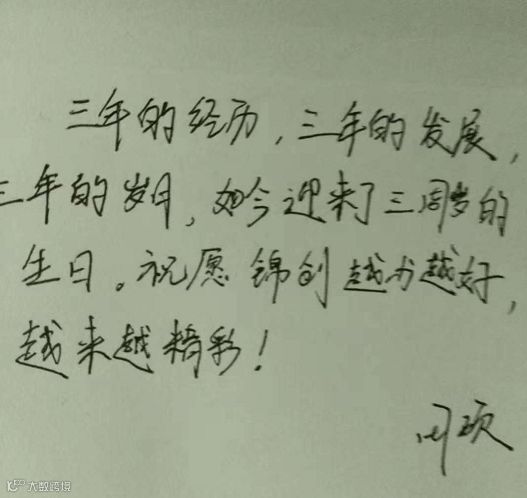 三年的经历，三年的发展，
三年的岁月，如今迎来了三周岁的
生日。祝愿锦创越办越好，
越来越精彩！
大数跨境